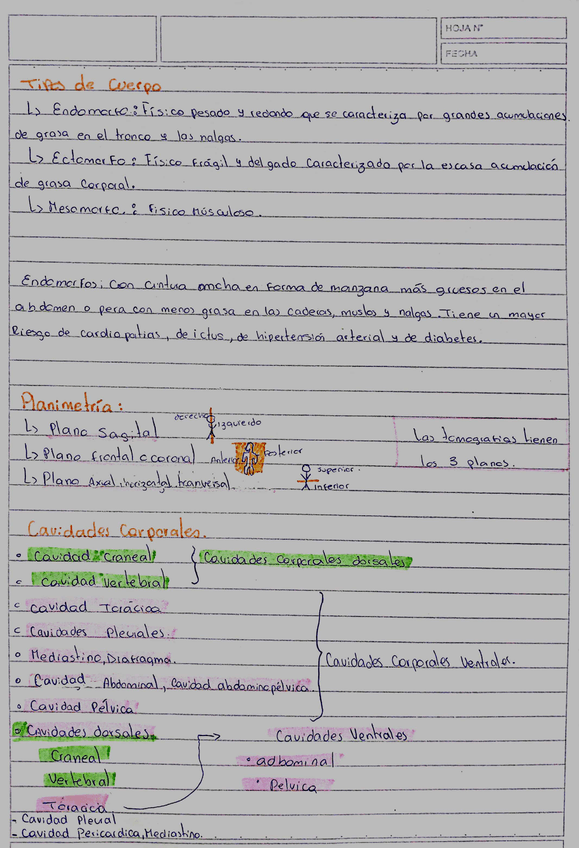 HOJA N°
FECHA
Tipos de Cuerpo
↳ Endomorfo: Físico pesado y redondo que se caracteriza por grandes acumulaciones
de grasa en el tronco y las nalgas.
↳ Ectomorfo: Físico frágil y delgado caracterizado por la escasa acumulación
de grasa corporal.
↳ Mesomorfo: Físico Músculoso.
Endomorfos: Con cintura ancha en forma de manzana más gruesos en el
abdomen o pera con menos grasa en las caderas, muslos y nalgas. Tiene un mayor
Riesgo de cardiopatias, de ictus, de hipertensión arterial y de diabetes.
Planimetría:
↳ Plano Sagital derecho izquierdo
Las tomografías tienen
↳ Plano frontal o coronal Anterior Posterior
los 3 planos.
↳ Plano Axial, horizontal, tranversal superior.
inferior
Cavidades Corporales.
Cavidad Craneal
Cavidades corporales dorsales
Cavidad vertebral
Cavidad Torácica
Cavidades Pleurales.
Mediastino, Diafragma.
Cavidades Corporales Ventrales.
Cavidad Abdominal, Cavidad abdominopélvica
Cavidad Pélvica
Cavidades dorsales.
Cavidades Ventrales
Craneal
adbominal
Vertebral
Pelvica
Tóracica
- Cavidad Pleural
- Cavidad Pericardica, Mediastino.